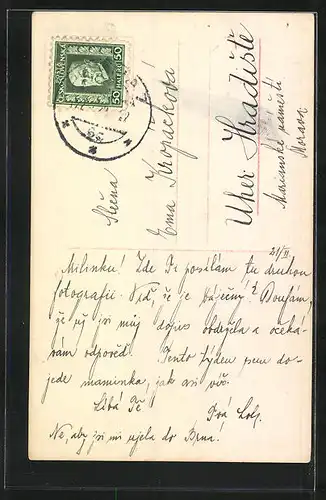 ČESKO-SLOVENSKO
50 HALÉŘŮ 50
Slečna
Ema Kropáčková
Uher Hradiště
Mariánské náměstí
Morava
21/II
Milinku! Zde Ti posílám tu druhou
fotografii. Viď, že je báječný? Doufám,
že už jsi můj dopis obdržela a oceká-
vám odpověď. Tento týden sem do-
jede maminka, jak asi víš.
Líbá Tě
Tvá
Ne, aby jsi mi ujela do Brna!